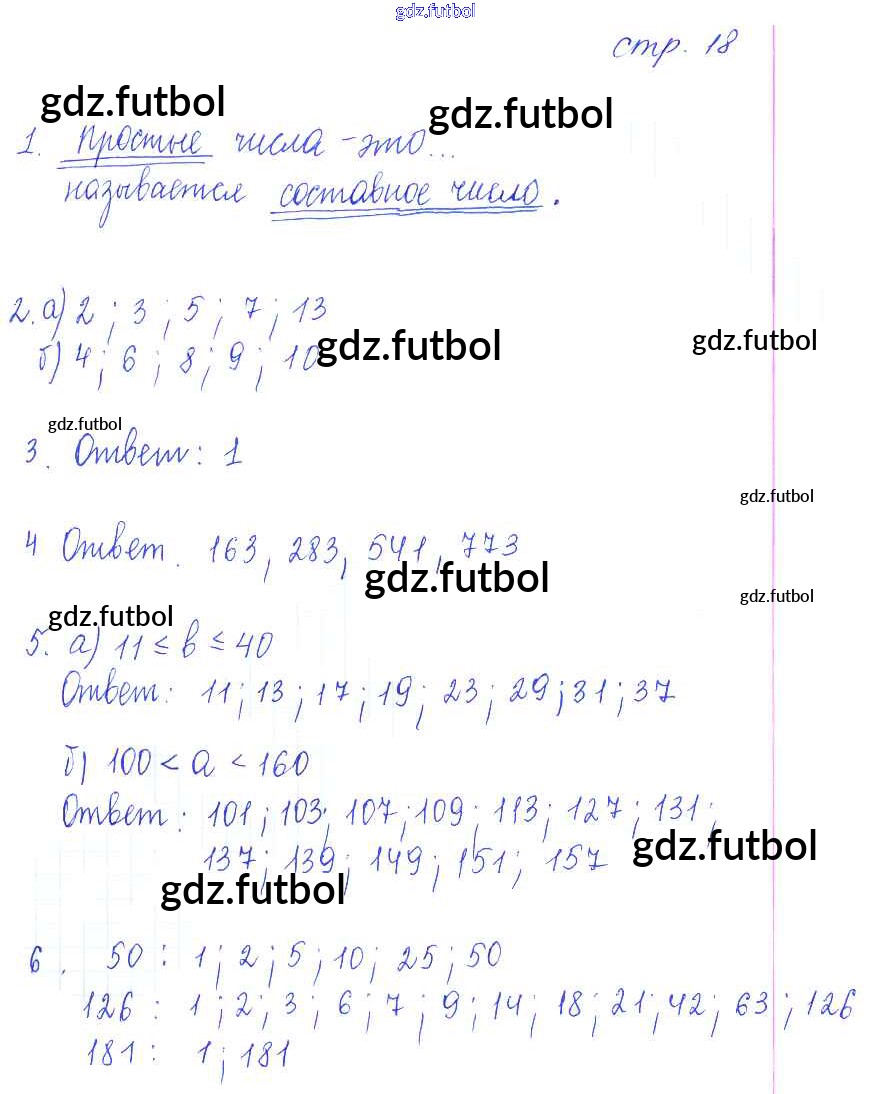 gdz.futbol
стр. 18
gdz.futbol
gdz.futbol
1. Простые числа - это...
называется составное число.
2. а) 2 ; 3 ; 5 ; 7 ; 13
gdz.futbol
gdz.futbol
б) 4 ; 6 ; 8 ; 9 ; 10
gdz.futbol
3. Ответ: 1
gdz.futbol
4 Ответ. 163, 283, 541, 773
gdz.futbol
gdz.futbol
gdz.futbol
5. а) 11 ≤ b ≤ 40
Ответ: 11 ; 13 ; 17 ; 19 ; 23 ; 29 ; 31 ; 37
б) 100 < a < 160
Ответ: 101 ; 103 ; 107 ; 109 ; 113 ; 127 ; 131 ;
gdz.futbol
137 ; 139 ; 149 ; 151 ; 157
gdz.futbol
6. 50 : 1 ; 2 ; 5 ; 10 ; 25 ; 50
126 : 1 ; 2 ; 3 ; 6 ; 7 ; 9 ; 14 ; 18 ; 21 ; 42 ; 63 ; 126
181 : 1 ; 181